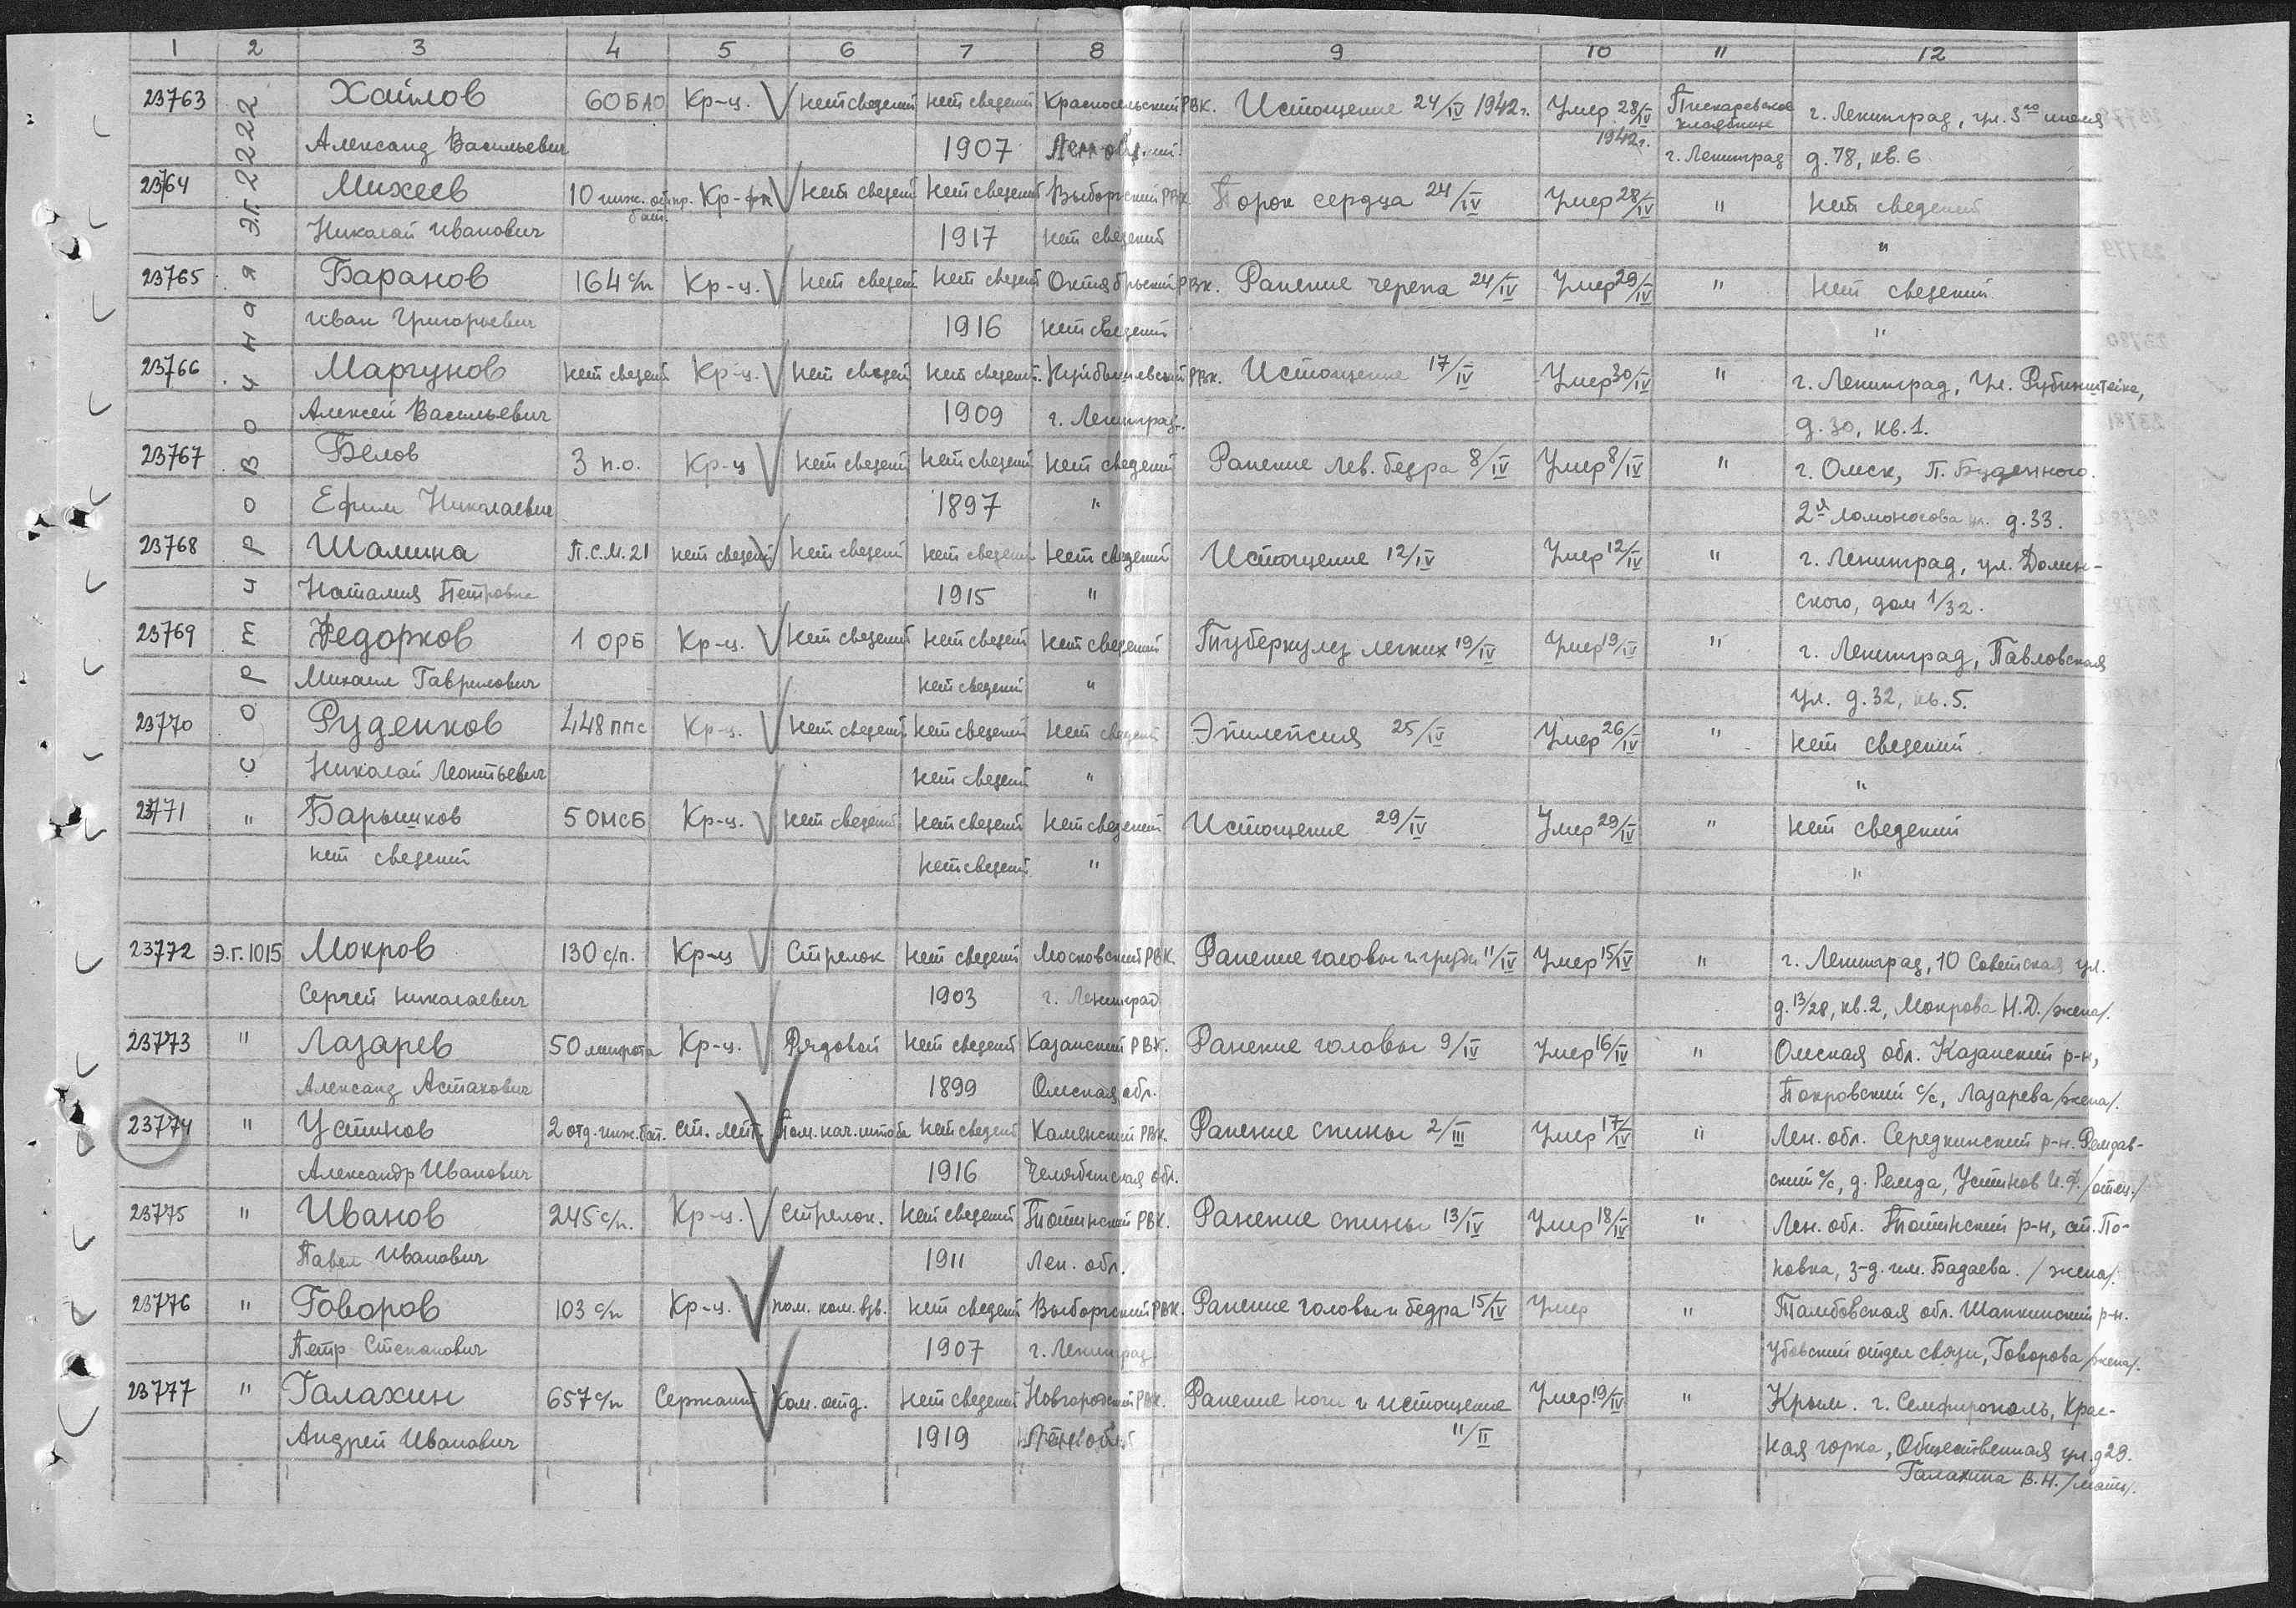 1 2 3 4 5 6 7 8 9 10 11 12
Сортировочная э.г. 2222
23763 Хайлов 60 БАО Кр-ц. нет сведений нет сведений Красносельский РВК. Истощение 24/IV 1942 г. Умер 28/IV 1942 г. Пискаревское кладбище г. Ленинград, ул. 3го июля
Александ Васильевич 1907 г. Ленинград д. 78, кв. 6
23764 Михеев 10 инж. бат. Кр-фл нет сведений нет сведений Выборгский РВК Порок сердца 24/IV Умер 28/IV " нет сведений
Николай Иванович 1917 нет сведений "
23765 Баранов 164 с/п Кр-ц. нет сведений нет сведений Октябрьский РВК. Ранение черепа 24/IV Умер 29/IV " нет сведений
Иван Григорьевич 1916 нет сведений "
23766 Маргунов нет сведений Кр-ц. нет сведений нет сведений Куйбышевский РВК. Истощение 17/IV Умер 30/IV " г. Ленинград, ул. Рубинштейна,
Алексей Васильевич 1909 г. Ленинград. д. 30, кв. 1.
23767 Белов 3 п.о. Кр-ц нет сведений нет сведений нет сведений Ранение лев. бедра 8/IV Умер 8/IV " г. Омск, П. Буденного.
Ефим Николаевич 1897 " 2я Ломоносова ул. д. 33.
23768 Шамина П.С.М. 21 нет сведений нет сведений нет сведений нет сведений Истощение 12/IV Умер 12/IV " г. Ленинград, ул. Долин-
Наталия Петровна 1915 " ского, дом 1/32.
23769 Федорков 1 ОРБ Кр-ц. нет сведений нет сведений нет сведений Туберкулез легких 19/IV Умер 19/IV " г. Ленинград, Павловская
Михаил Гаврилович нет сведений " ул. д. 32, кв. 5.
23770 Руденков 448 ппс Кр-ц. нет сведений нет сведений нет сведений Эпилепсия 25/IV Умер 26/IV " нет сведений
Николай Леонтьевич нет сведений " "
23771 " Барышков 50 МСБ Кр-ц. нет сведений нет сведений нет сведений Истощение 29/IV Умер 29/IV " нет сведений
нет сведений нет сведений " "
23772 Э.г. 1015 Мокров 130 с/п. Кр-ц Стрелок нет сведений Московский РВК Ранение головы и груди 11/IV Умер 15/IV " г. Ленинград, 10 Советская ул.
Сергей Николаевич 1903 г. Ленинград д. 13/28, кв. 2, Мокрова Н.Д. /жена/.
23773 " Лазарев 50 Кр-ц. Рядовой нет сведений Казанский РВК. Ранение головы 9/IV Умер 16/IV " Омская обл. Казанский р-н,
Александ Астахович 1899 Омская обл. Покровский с/с, Лазарева /жена/.
23774 " Устинов 2 отд. инж. бат. ст. лейт. Пом. нач. штаба нет сведений Каменский РВК. Ранение спины 2/III Умер 17/IV " Лен. обл. Середкинский р-н. Ремдав-
Александр Иванович 1916 Челябинская обл. ский с/с, д. Ремда, Устинов И.Ф. /отец./
23775 " Иванов 245 с/п. Кр-ц. Стрелок. нет сведений Тосненский РВК. Ранение спины 13/IV Умер 18/IV " Лен. обл. Тосненский р-н, ст. По-
Павел Иванович 1911 Лен. обл. повка, з-д. им. Бадаева. /жена/.
23776 " Говоров 103 с/п Кр-ц. пом. ком. взв. нет сведений Выборгский РВК. Ранение головы и бедра 15/IV Умер " Тамбовская обл. Шапкинский р-н.
Петр Степанович 1907 г. Ленинград отдел связи, Говорова /жена/.
23777 " Галахин 657 с/п Сержант Ком. отд. нет сведений Новгородский РВК. Ранение ноги и истощение Умер 19/IV " Крым. г. Симферополь, Крас-
Андрей Иванович 1919 11/II ная горка, Общественная ул. д 29.
Галахина В.Н. /мать/.